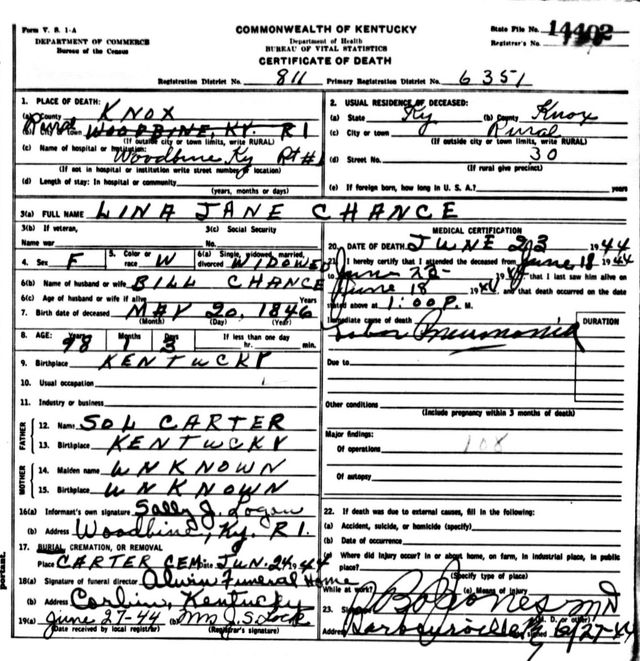 Form V. S. 1-A
DEPARTMENT OF COMMERCE
Bureau of the Census
COMMONWEALTH OF KENTUCKY
Department of Health
BUREAU OF VITAL STATISTICS
CERTIFICATE OF DEATH
State File No. 14402
Registrar's No.
Registration District No. 811 Primary Registration District No. 6351
1. PLACE OF DEATH:
(a) County KNOX
Rural town WOODBINE, KY. R 1
(If outside city or town limits, write RURAL)
(c) Name of hospital or institution: Woodbine Ky Rt #1
(If not in hospital or institution write street number or location)
(d) Length of stay: In hospital or community
(years, months or days)
2. USUAL RESIDENCE OF DECEASED:
(a) State Ky (b) County Knox
(c) City or town Rural
(If outside city or town limits, write RURAL)
(d) Street No. 30
(If rural give precinct)
(e) If foreign born, how long in U. S. A.? years
3(a) FULL NAME LINA JANE CHANCE
3(b) If veteran, 3(c) Social Security
Name war No.
4. Sex F 5. Color or race W 6(a) Single, widowed, married, divorced WIDOWED
6(b) Name of husband or wife BILL CHANCE
6(c) Age of husband or wife if alive Years
7. Birth date of deceased MAY 20, 1846
(Month) (Day) (Year)
8. AGE: Years 98 Months 1 Days 3 If less than one day
hr. min.
9. Birthplace KENTUCKY
10. Usual occupation
11. Industry or business
FATHER
12. Name SOL CARTER
13. Birthplace KENTUCKY
MOTHER
14. Maiden name UNKNOWN
15. Birthplace UNKNOWN
16(a) Informant's own signature Sally J. Logan
(b) Address Woodbine, Ky. R 1.
17. BURIAL, CREMATION, OR REMOVAL
Place CARTER CEM. Date JUN. 24, 1944
18(a) Signature of funeral director Alwin Funeral Home
(b) Address Corbin, Kentucky
19(a) June 27-44 (b) Mrs J. S. Lock
(Date received by local registrar) (Registrar's signature)
MEDICAL CERTIFICATION
20. DATE OF DEATH JUNE 23 1944
21. I hereby certify that I attended the deceased from June 18 1944
to June 23- 1944 that I last saw him alive on
June 18 1944 and that death occurred on the date
stated above at 1:00 P. M.
Immediate cause of death DURATION
Lobar Pneumonia
Due to
Other conditions
(Include pregnancy within 3 months of death)
Major findings:
Of operations 108
Of autopsy
22. If death was due to external causes, fill in the following:
(a) Accident, suicide, or homicide (specify)
(b) Date of occurrence
(c) Where did injury occur? In or about home, on farm, in industrial place, in public
place?
(Specify type of place)
While at work? (e) Means of Injury
23. Jones MD
(M. D. or other)
Address Barbourville Ky signed 6/27-44
portant.